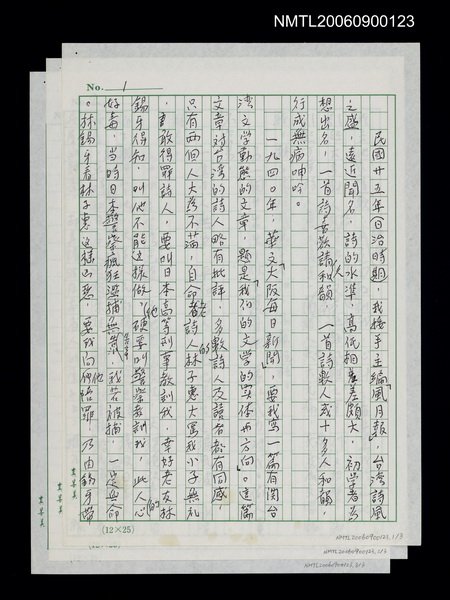 NMTL20060900123
No. 1
民國廿五年(日治時期),我接手主編「風月報」,台灣詩風
之盛,遠近聞名,詩人的水準,高低相差頗大,初學者為
想出名,一首詩人喜歡請和韻,一首詩數人或十多人和韻,
行成無病呻吟。
一九四○年,「華文大阪每日新聞」,要我寫一篇有関台
湾文學動態的文章,題是「我們的文學的实体与方向」。這篇
文章对台湾的詩人略有批评,多數詩人及讀者都有同感,
只有兩個人大為不滿,自命老詩人的林子惠大罵我小子無礼
,敢得罪詩人,要叫日本高等刑事教訓我,幸好老友林
錫牙得知,叫他不能这樣做,他硬要叫警察教訓我,此人心的
好毒,当時日本警察瘋狂濫捕無辜,我若被捕,一定無命
。林錫牙看林子惠这樣凶惡,要我向他陪罪,乃由錫牙帶
(12×25)
NMTL20060900123, 1/3
NMTL20060900123, 2/3
NMTL20060900123, 3/3